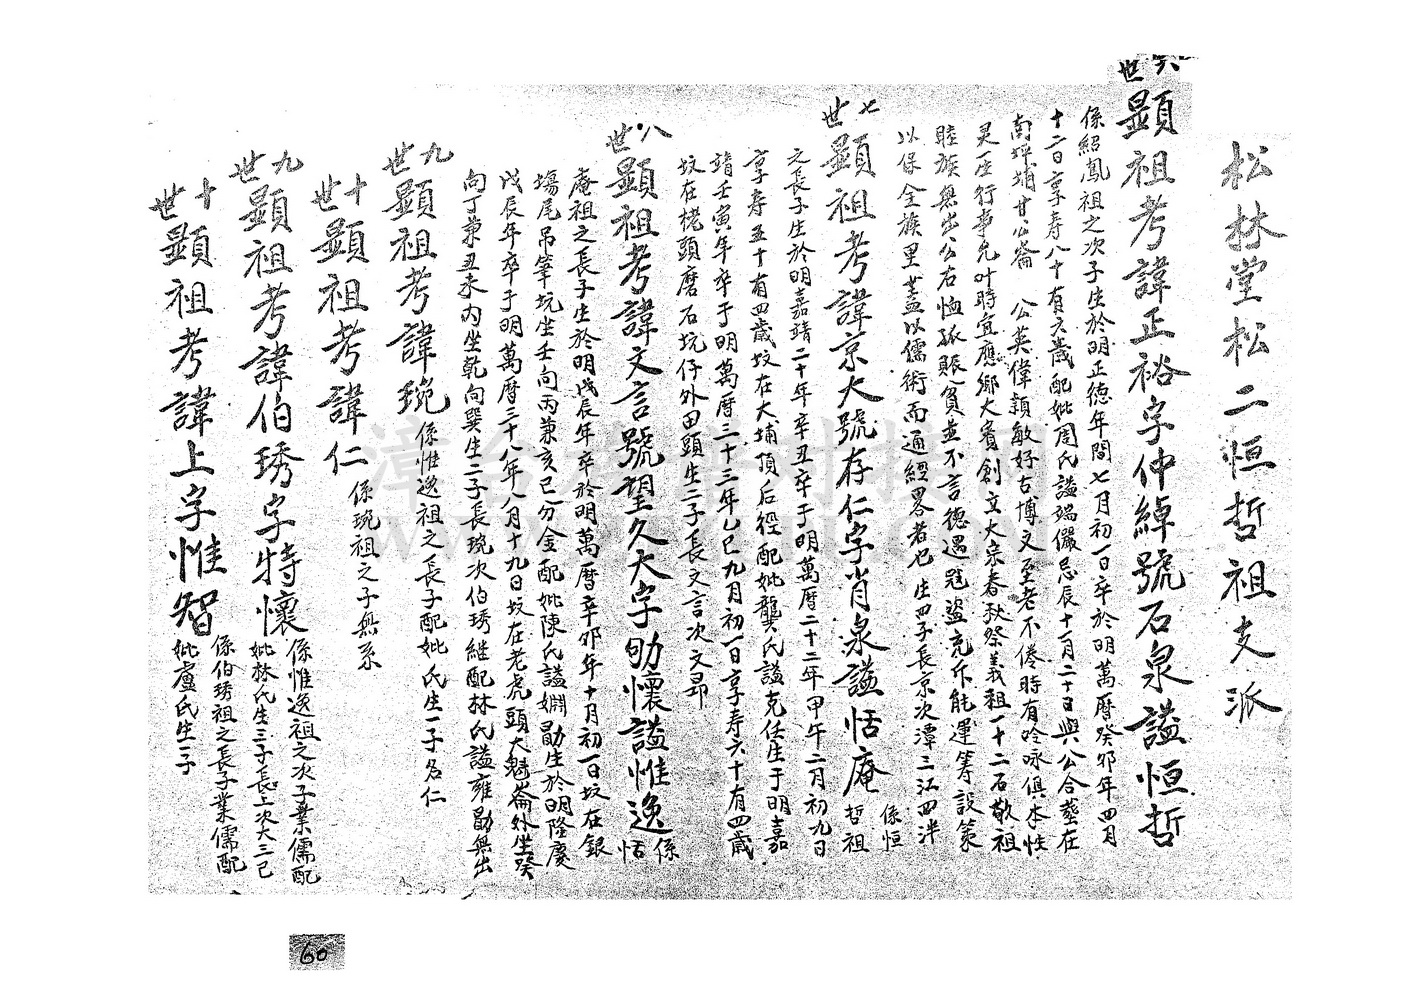 松林堂松二恒哲祖支派
六世
顕祖考諱正裕字仲綽號石泉謚恒哲
係紹鳳祖之次子生於明正德年間七月初一日卒於明萬曆癸卯年四月
十二日享寿八十有六歲配妣周氏謚瑞儼忌辰十一月二十日與公合塟在
南坪埔甘公崙 公英偉穎敏好古博文至老不倦時有吟咏俱本性
灵一座行事允叶時宜應鄉大賓創立大宗春秋祭義租一十二石敬祖
睦族無出公右恤孤賑貧並不言德遇寇盜充斥能運筹設策
以保全族里盖以儒術而通經畧者也 生四子長京次潭三江四泮
七世
顕祖考諱京大號存仁字肖泉謚恬庵
係恒哲祖
之長子生於明嘉靖二十年辛丑卒于明萬曆二十二年甲午二月初九日
享寿五十有四歲坟在大埔頂后徑配妣龔氏謚克任生于明嘉
靖壬寅年卒于明萬曆三十三年乙巳九月初一日享寿六十有四歲
坟在栳頭磨石坑仔外田頭生二子長文言次文昂
八世
顕祖考諱文言號望久大字劬懷謚惟逸
係恬
庵祖之長子生於明戊辰年卒於明萬曆辛卯年十月初一日坟在銀
塲尾吊䈇坑坐壬向丙兼亥巳分金配妣陳氏謚嫺勗生於明隆慶
戊辰年卒于明萬曆三十八年八月十九日坟在老虎頭大魅崙外坐癸
向丁兼丑未内坐乾向巽生二子長琬次伯琇继配林氏謚雍勗無出
九世
顕祖考諱琬
係惟逸祖之長子配妣 氏生一子名仁
十世
顕祖考諱仁
係琬祖之子無系
九世
顕祖考諱伯琇字特懷
係惟逸祖之次子業儒配
妣林氏生三子長上次大三已
十世
顕祖考諱上字惟智
係伯琇祖之長子業儒配
妣盧氏生三子
漳台族谱对接网
60